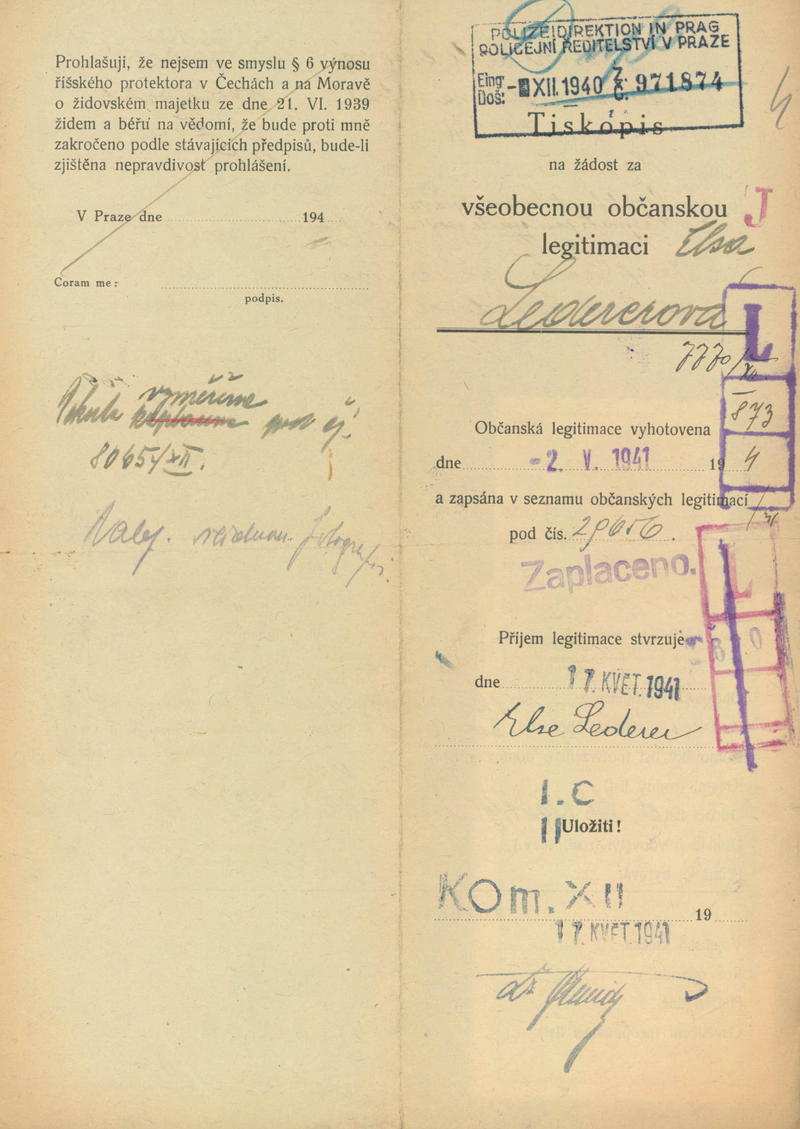 Prohlašuji, že nejsem ve smyslu § 6 výnosu
říšského protektora v Čechách a na Moravě
o židovském majetku ze dne 21. VI. 1939
židem a béřu na vědomí, že bude proti mně
zakročeno podle stávajících předpisů, bude-li
zjištěna nepravdivost prohlášení.
V Praze dne 194
Coram me:
podpis.
vyměříme
80654/XII.
POLIZEIDIREKTION IN PRAG
POLICEJNÍ ŘEDITELSTVÍ V PRAZE
Eing.
Doš.
XII. 1940 Z. Č. 971874
Tiskopis
na žádost za
všeobecnou občanskou J
legitimaci Elsa
Ledererová
L
873
Občanská legitimace vyhotovena
dne - 2. V. 1941 19 4
a zapsána v seznamu občanských legitimací
pod čís.
Zaplaceno.
L
Příjem legitimace stvrzuje
dne 17. KVĚT. 1941
Else Lederer
I. C
Uložiti!
Kom. XII
19
17. KVĚT. 1941